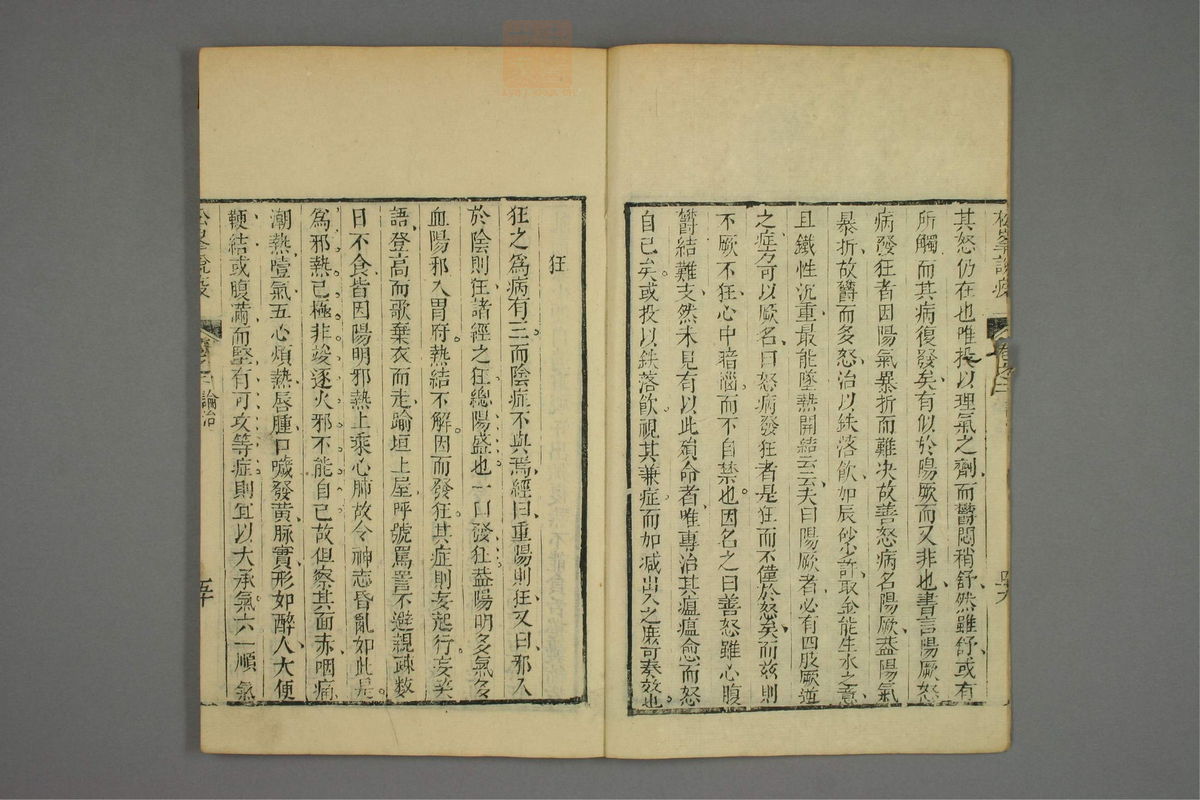 松峯說疫
卷之二
其怒仍在也唯投以理氣之劑而鬱悶稍舒然雖舒或有
所觸而其病復發矣有似於陽厥而又非也書言陽厥怒
病發狂者因陽氣暴折而難决故善怒病名陽厥葢陽氣
暴折故鬱而多怒治以鉄落飲如辰砂少許取金能生水之意
且鐵性沉重最能墜熱開結云云夫曰陽厥者必有四肢厥逆
之症方可以厥名曰怒病發狂者是狂而不僅於怒矣而玆則
不厥不狂心中暗惱而不自禁也因名之曰善怒雖心腹
鬱結難支然未見有以此殞命者唯專治其瘟瘟愈而怒
自已矣或投以鉄落飲視其兼症而加减出入之庶可奏效也
狂
狂之爲病有三而陰症不與焉經曰重陽則狂又曰邪入
於陰則狂諸經之狂總陽盛也一曰發狂葢陽明多氣多
血陽邪入胃府熱結不解因而發狂其症則妄起行妄笑
語登高而歌棄衣而走踰垣上屋呼號罵詈不避親疎數
日不食皆因陽明邪熱上乘心肺故令神志昏亂如此是
爲邪熱已極非竣逐火邪不能自已故但察其面赤咽痛
潮熱噎氣五心煩熱唇腫口噦發黃脉實形如醉人大便
鞕結或腹滿而堅有可攻等症則宜以大承氣六一順氣
松峯說疫
卷之二
論治
五十